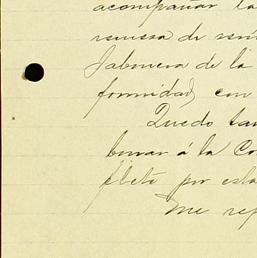 acompañar la
remesa de
Jabonera de la
formidad, con
Quedo
á la Co
flete por esta
Me rep